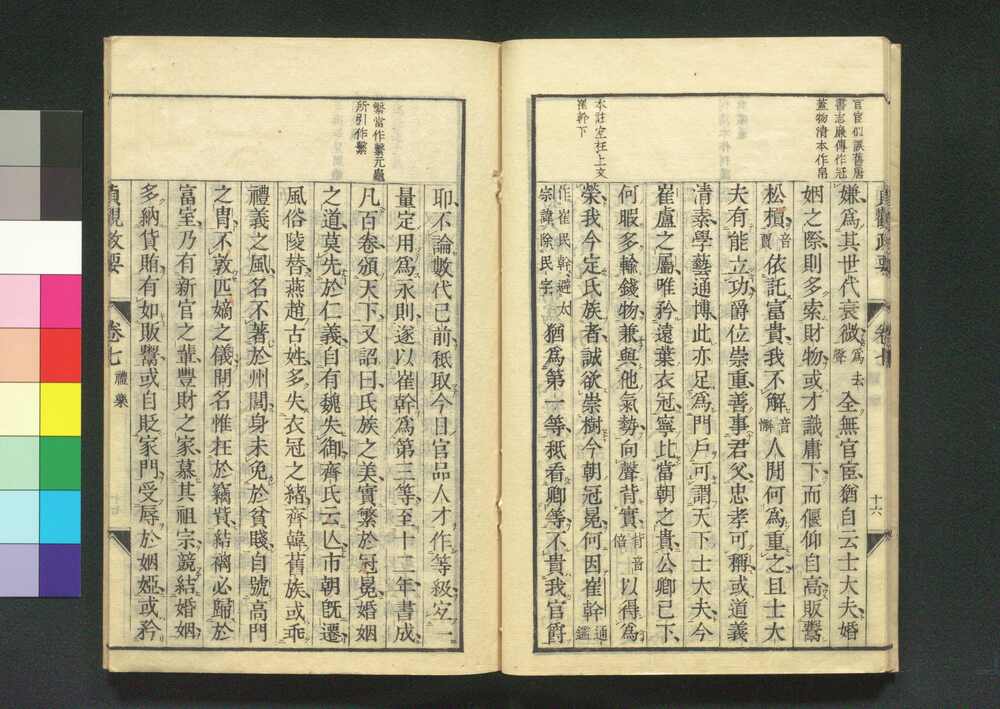 官宦似誤舊唐
書志廉傳作冠
蓋物清本作帛
本註定在上文
崔幹下
嫌爲其世代衰微爲去聲全無官宦猶自云士大夫婚
姻之際則多索財物或才識庸下而偃仰自高販鬻
松檟音賈依託富貴我不解音懈人閒何爲重之且士大
夫有能立功爵位崇重善事君父忠孝可稱或道義
清素學藝通博此亦足爲門戶可謂天下士大夫今
崔盧之屬唯矜遠葉衣冠寧比當朝之貴公卿已下
何暇多輸錢物兼與他氣勢向聲背實背音倍以得爲
榮我今定氏族者誠欲崇樹今朝冠冕何因崔幹通鑑
作崔民幹避太宗諱除民字猶爲第一等秖看卿等不貴我官爵
貞觀政要
卷七
十六
繁當作繫元龜
所引作繫
耶不論數代已前秖取今日官品人才作等級宜一
量定用爲永則遂以崔幹爲第三等至十二年書成
凡百卷頒天下又詔曰氏族之美實繁於冠冕婚姻
之道莫先於仁義自有魏失御齊氏云亾市朝旣遷
風俗陵替燕趙古姓多失衣冠之緒齊韓舊族或乖
禮義之風名不著於州閭身未免於貧賤自號高門
之冑不敦匹嫡之儀問名惟在於竊貲結褵必歸於
富室乃有新官之輩豐財之家慕其祖宗競結婚姻
多納貨賄有如販鬻或自貶家門受辱於姻婭或矜
貞觀政要
卷七
禮樂